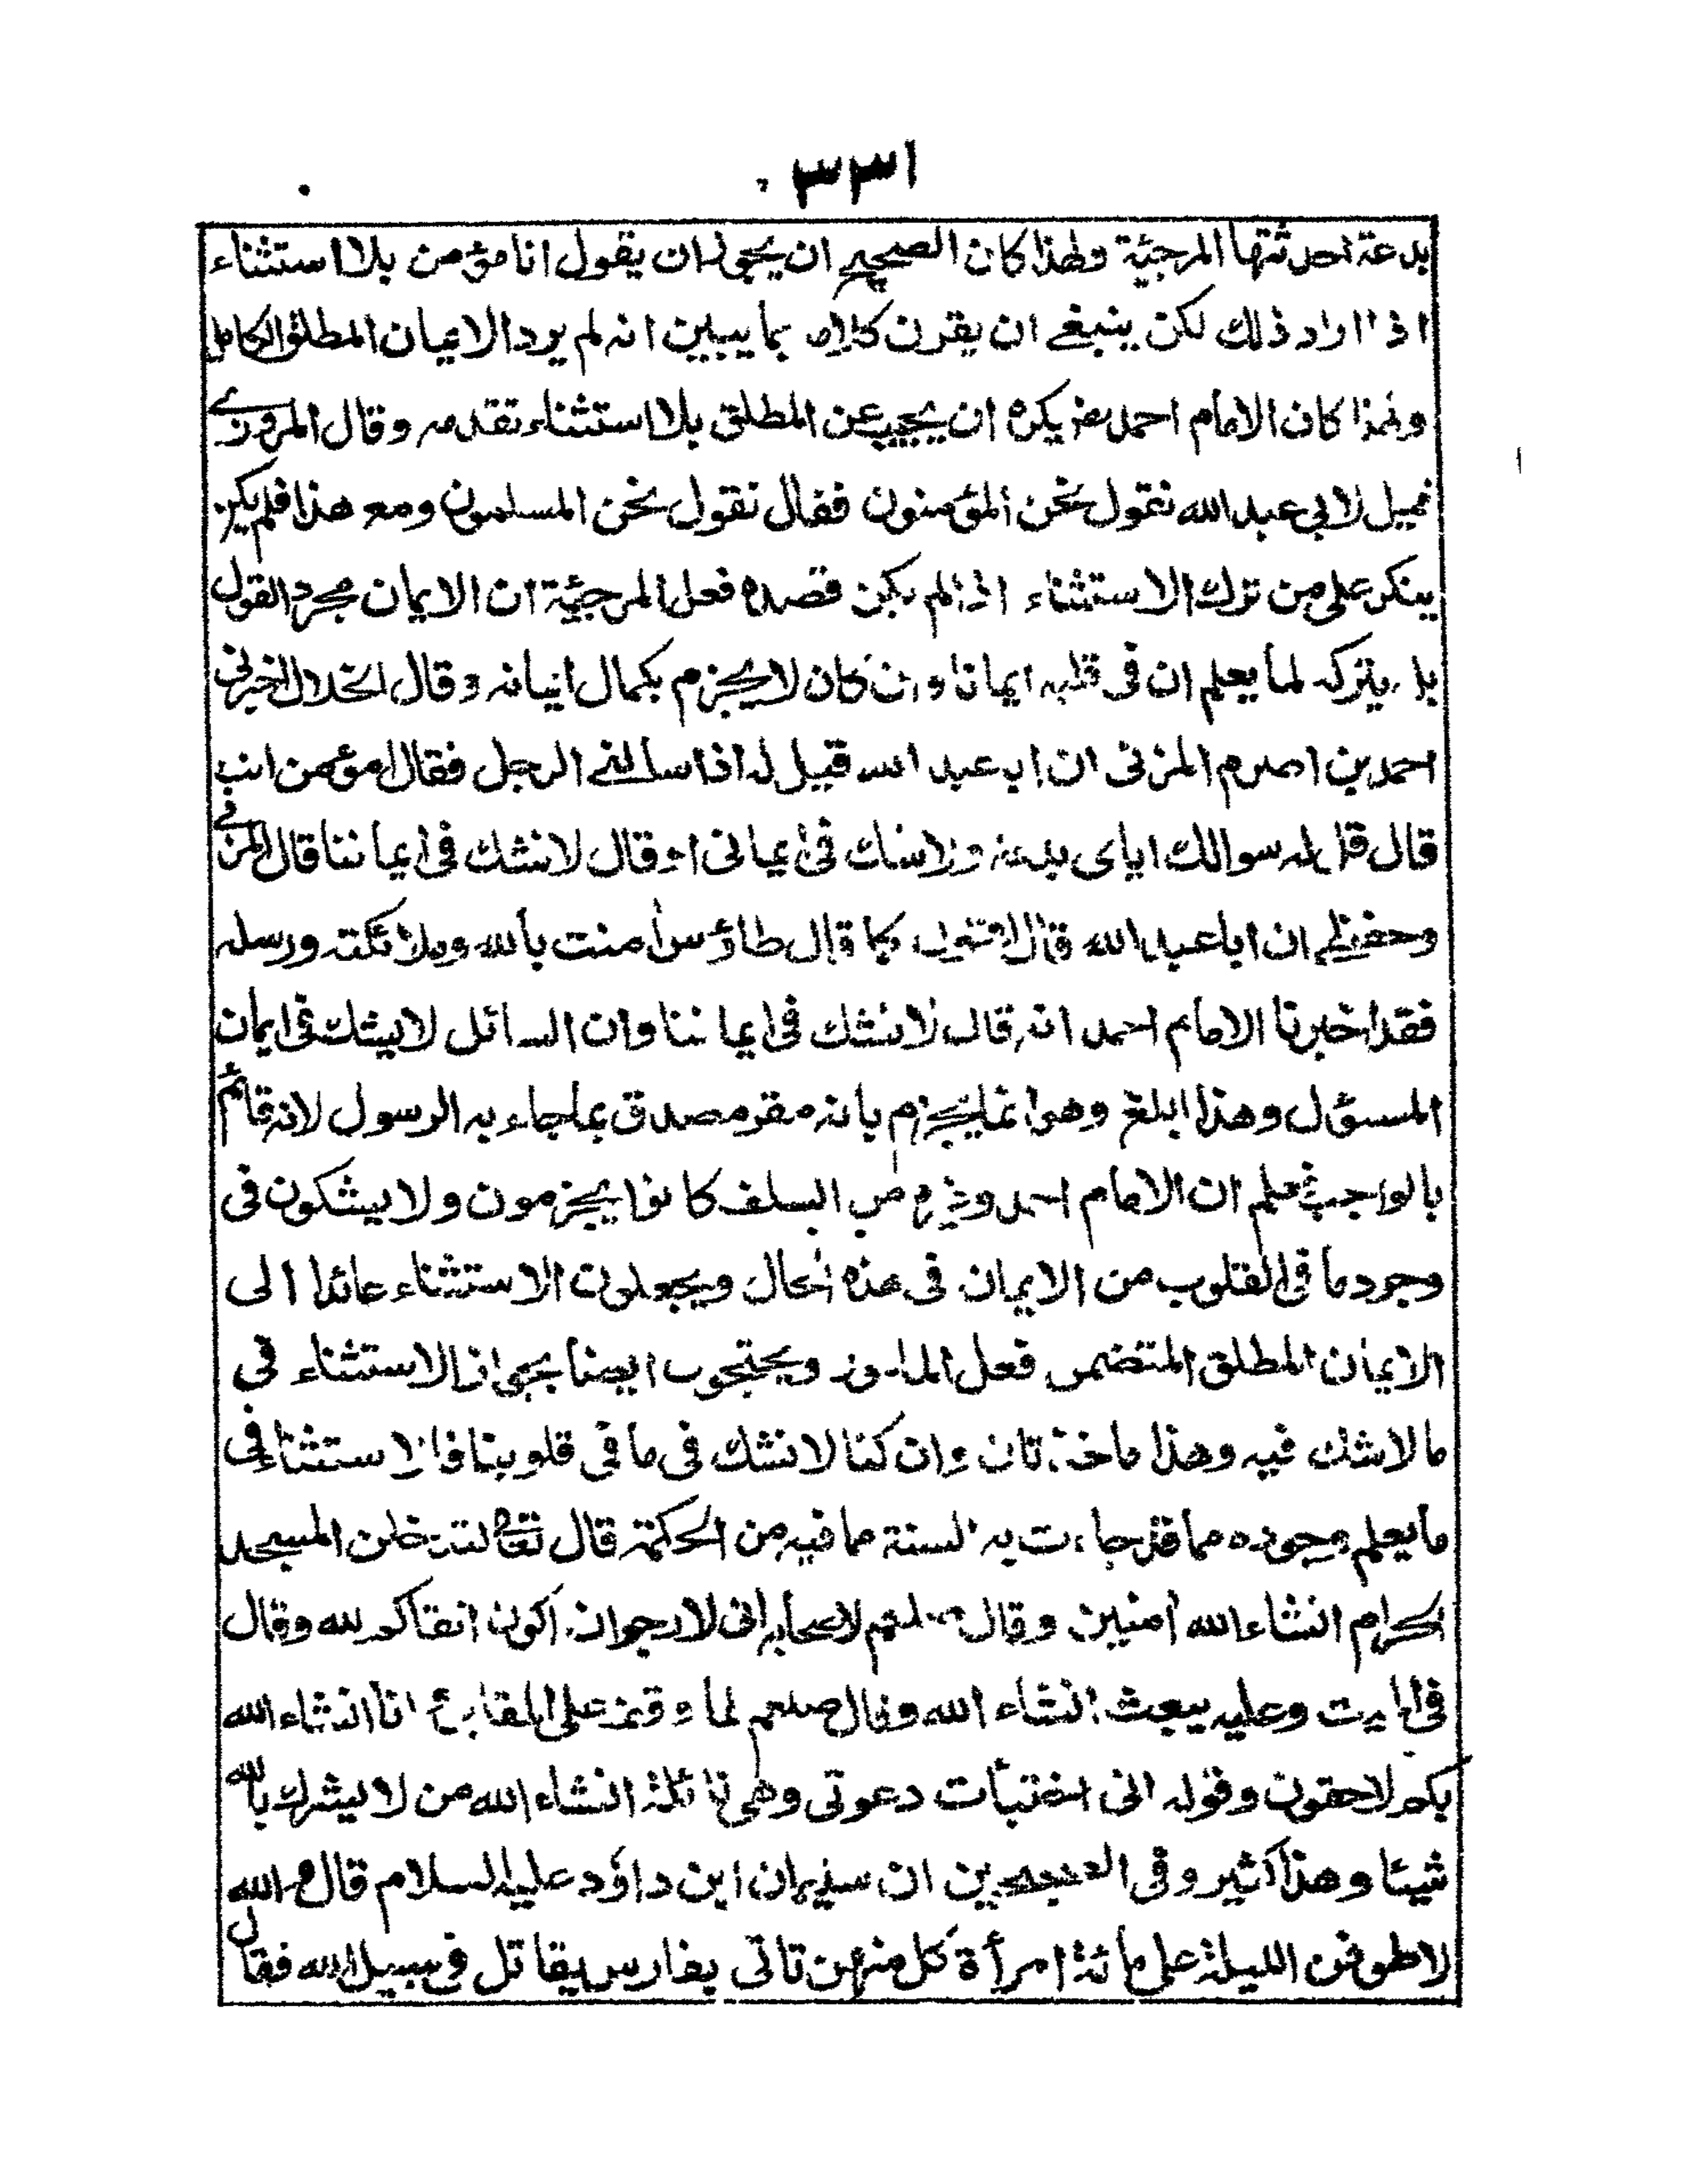 ٣٣١
بدعة احدثتها المرجئة ولهذا كان الصحيح ان يجوز ان يقول انا مؤمن بلا استثناء
اذا اراد ذلك لكن ينبغے ان يقرن كلامه بما يبين انه لم يرد الايمان المطلق الكامل
ولهذا كان الامام احمد يكره ان يجيب عن المطلق بلا استثناء تقدمه وقال المروزے
قيل لابى عبد الله نقول نحن المؤمنون فقال نقول نحن المسلمون ومع هذا فلم يكن
ينكر على من ترك الاستثناء اذا لم يكن قصده فعل المرجئة ان الايمان مجرد القول
بل يتركه لما يعلم ان فى قلبه ايمانا وان كان لا يجزم بكمال ايمانه وقال الخلال اخبرنى
احمد بن اصرم المزنى ان ابا عبد الله قيل له اذا سألنے الرجل فقال امؤمن انت
قال قل له سوالك اياى بدعة ولا شك فى ايمانى او قال لا نشك فى ايماننا قال المزنے
وحفظى ان ابا عبد الله قال اقول كما قال طاؤس أمنت بالله وملائكته ورسله
فقد اخبرنا الامام احمد انه قال لا نشك فى ايماننا وان السائل لا يشك فى ايمان
المسؤل وهذا ابلغ وهو انما يجزم بانه مقر مصدق بما جاء به الرسول لانه قائم
بالواجب فعلم ان الامام احمد وغيره من السلف كانوا يجزمون ولا يشكون فى
وجود ما فى القلوب من الايمان فى هذه الحال ويجعلون الاستثناء عائدا الى
الايمان المطلق المتضمن فعل المامور ويحتجون ايضا بجواز الاستثناء فى
ما لا شك فيه وهذا ماخذ ثان وان كنا لا نشك فى ما فى قلوبنا فالاستثناء فى
ما يعلم وجوده مما قد جاءت به السنة مما فيه من الحكمة قال تعالى لتدخلن المسجد
الحرام انشاء الله أمنين وقال صلعم لاصحابه انى لارجو ان اكون اتقاكم لله وقال
فى الميت وعليه يبعث انشاء الله وقال صلعم لما وقف على المقابر انا انشاء الله
بكم لاحقون وقوله انى اختبأت دعوتى وهى نائلة انشاء الله من لا يشرك بالله
شيئا وهذا كثير وفى الصحيحين ان سليمان ابن داؤد عليه السلام قال والله
لاطوفن الليلة على مائة امرأة كل منهن تاتى بفارس يقاتل فى سبيل الله فقال